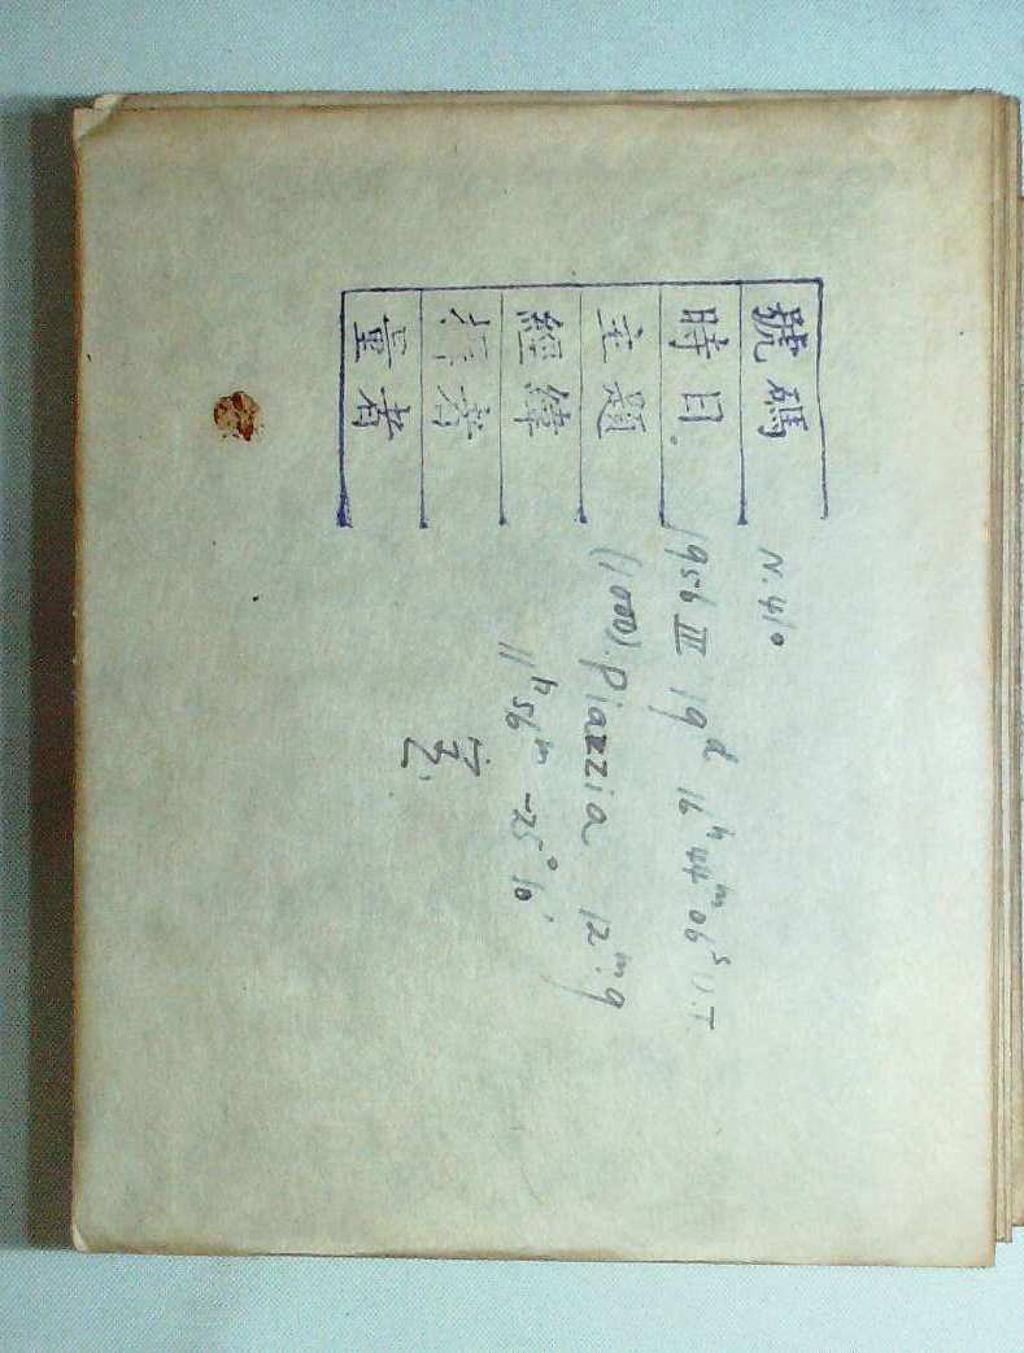 號碼 N.410
時日 1956 III 19ᵈ 16ʰ44ᵐ06ˢ U.T
主題 (1000). Piazzia 12ᵐ.9
經緯 11ʰ56ᵐ -25°10'
者
量者